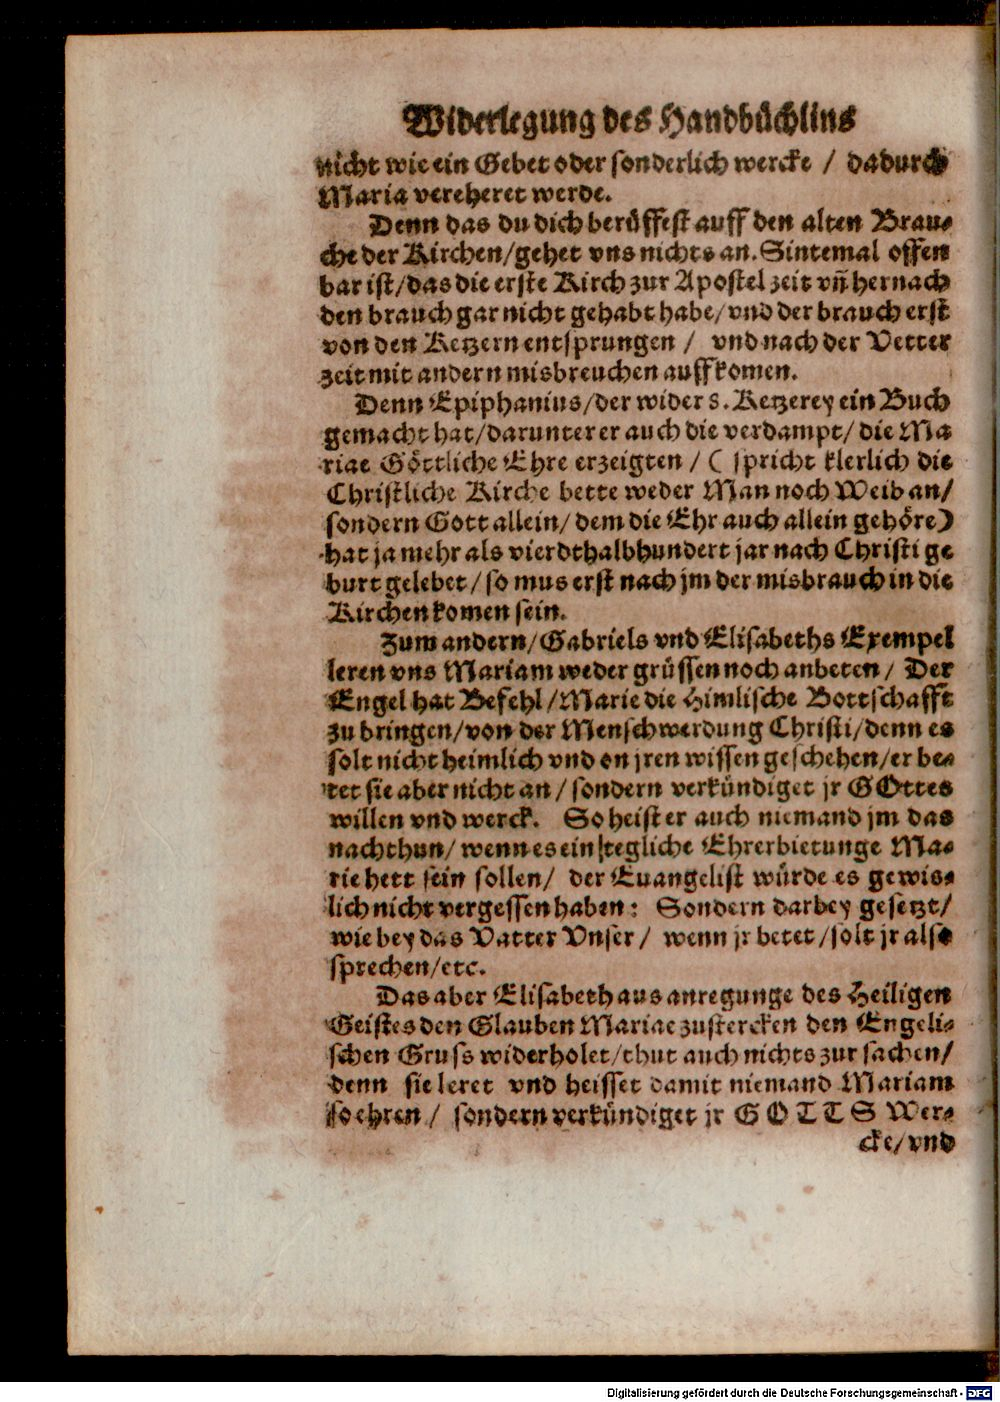 Widerlegung des Handbüchlins
nicht wie ein Gebet oder sonderlich wercke / dadurch
Maria vereheret werde.
Denn das du dich berüffest auff den alten Brau-
che der Kirchen/gehet vns nichts an. Sintemal offen
bar ist/das die erste Kirch zur Apostel zeit vñ hernach
den brauch gar nicht gehabt habe/vnd der brauch erst
von den Ketzern entsprungen / vnd nach der Vetter
zeit mit andern misbreuchen auffkomen.
Denn Epiphanius/der wider s. Ketzerey ein Buch
gemacht hat/darunter er auch die verdampt/die Ma
riae Göttliche Ehre erzeigten / ( spricht klerlich die
Christliche Kirche bette weder Man noch Weib an/
sondern Gott allein/dem die Ehr auch allein gehöre)
hat ja mehr als vierdthalbhundert jar nach Christi ge
burt gelebet/so mus erst nach jm der misbrauch in die
Kirchen komen sein.
Zum andern/Gabriels vnd Elisabeths Exempel
leren vns Mariam weder grüssen noch anbeten / Der
Engel hat Befehl/Marie die Himlische Bottschafft
zu bringen/von der Menschwerdung Christi/denn es
solt nicht heimlich vnd on jren wissen geschehen/er be-
tet sie aber nicht an/sondern verkündiget jr GOttes
willen vnd werck. So heist er auch niemand jm das
nachthun/wenn es ein stegliche Ehrerbietunge Ma-
rie hett sein sollen/ der Euangelist würde es gewis-
lich nicht vergessen haben: Sondern darbey gesetzt/
wie bey das Vatter Vnser / wenn jr betet/solt jr also
sprechen/etc.
Das aber Elisabeth aus anregunge des Heiligen
Geistes den Glauben Mariae zustercken den Engeli-
schen Gruss widerholet/thut auch nichts zur sachen/
denn sie leret vnd heisset damit niemand Mariam
so ehren / sondern verkündiget jr GOTTS Wer-
cke/vnd
Digitalisierung gefördert durch die Deutsche Forschungsgemeinschaft - DFG